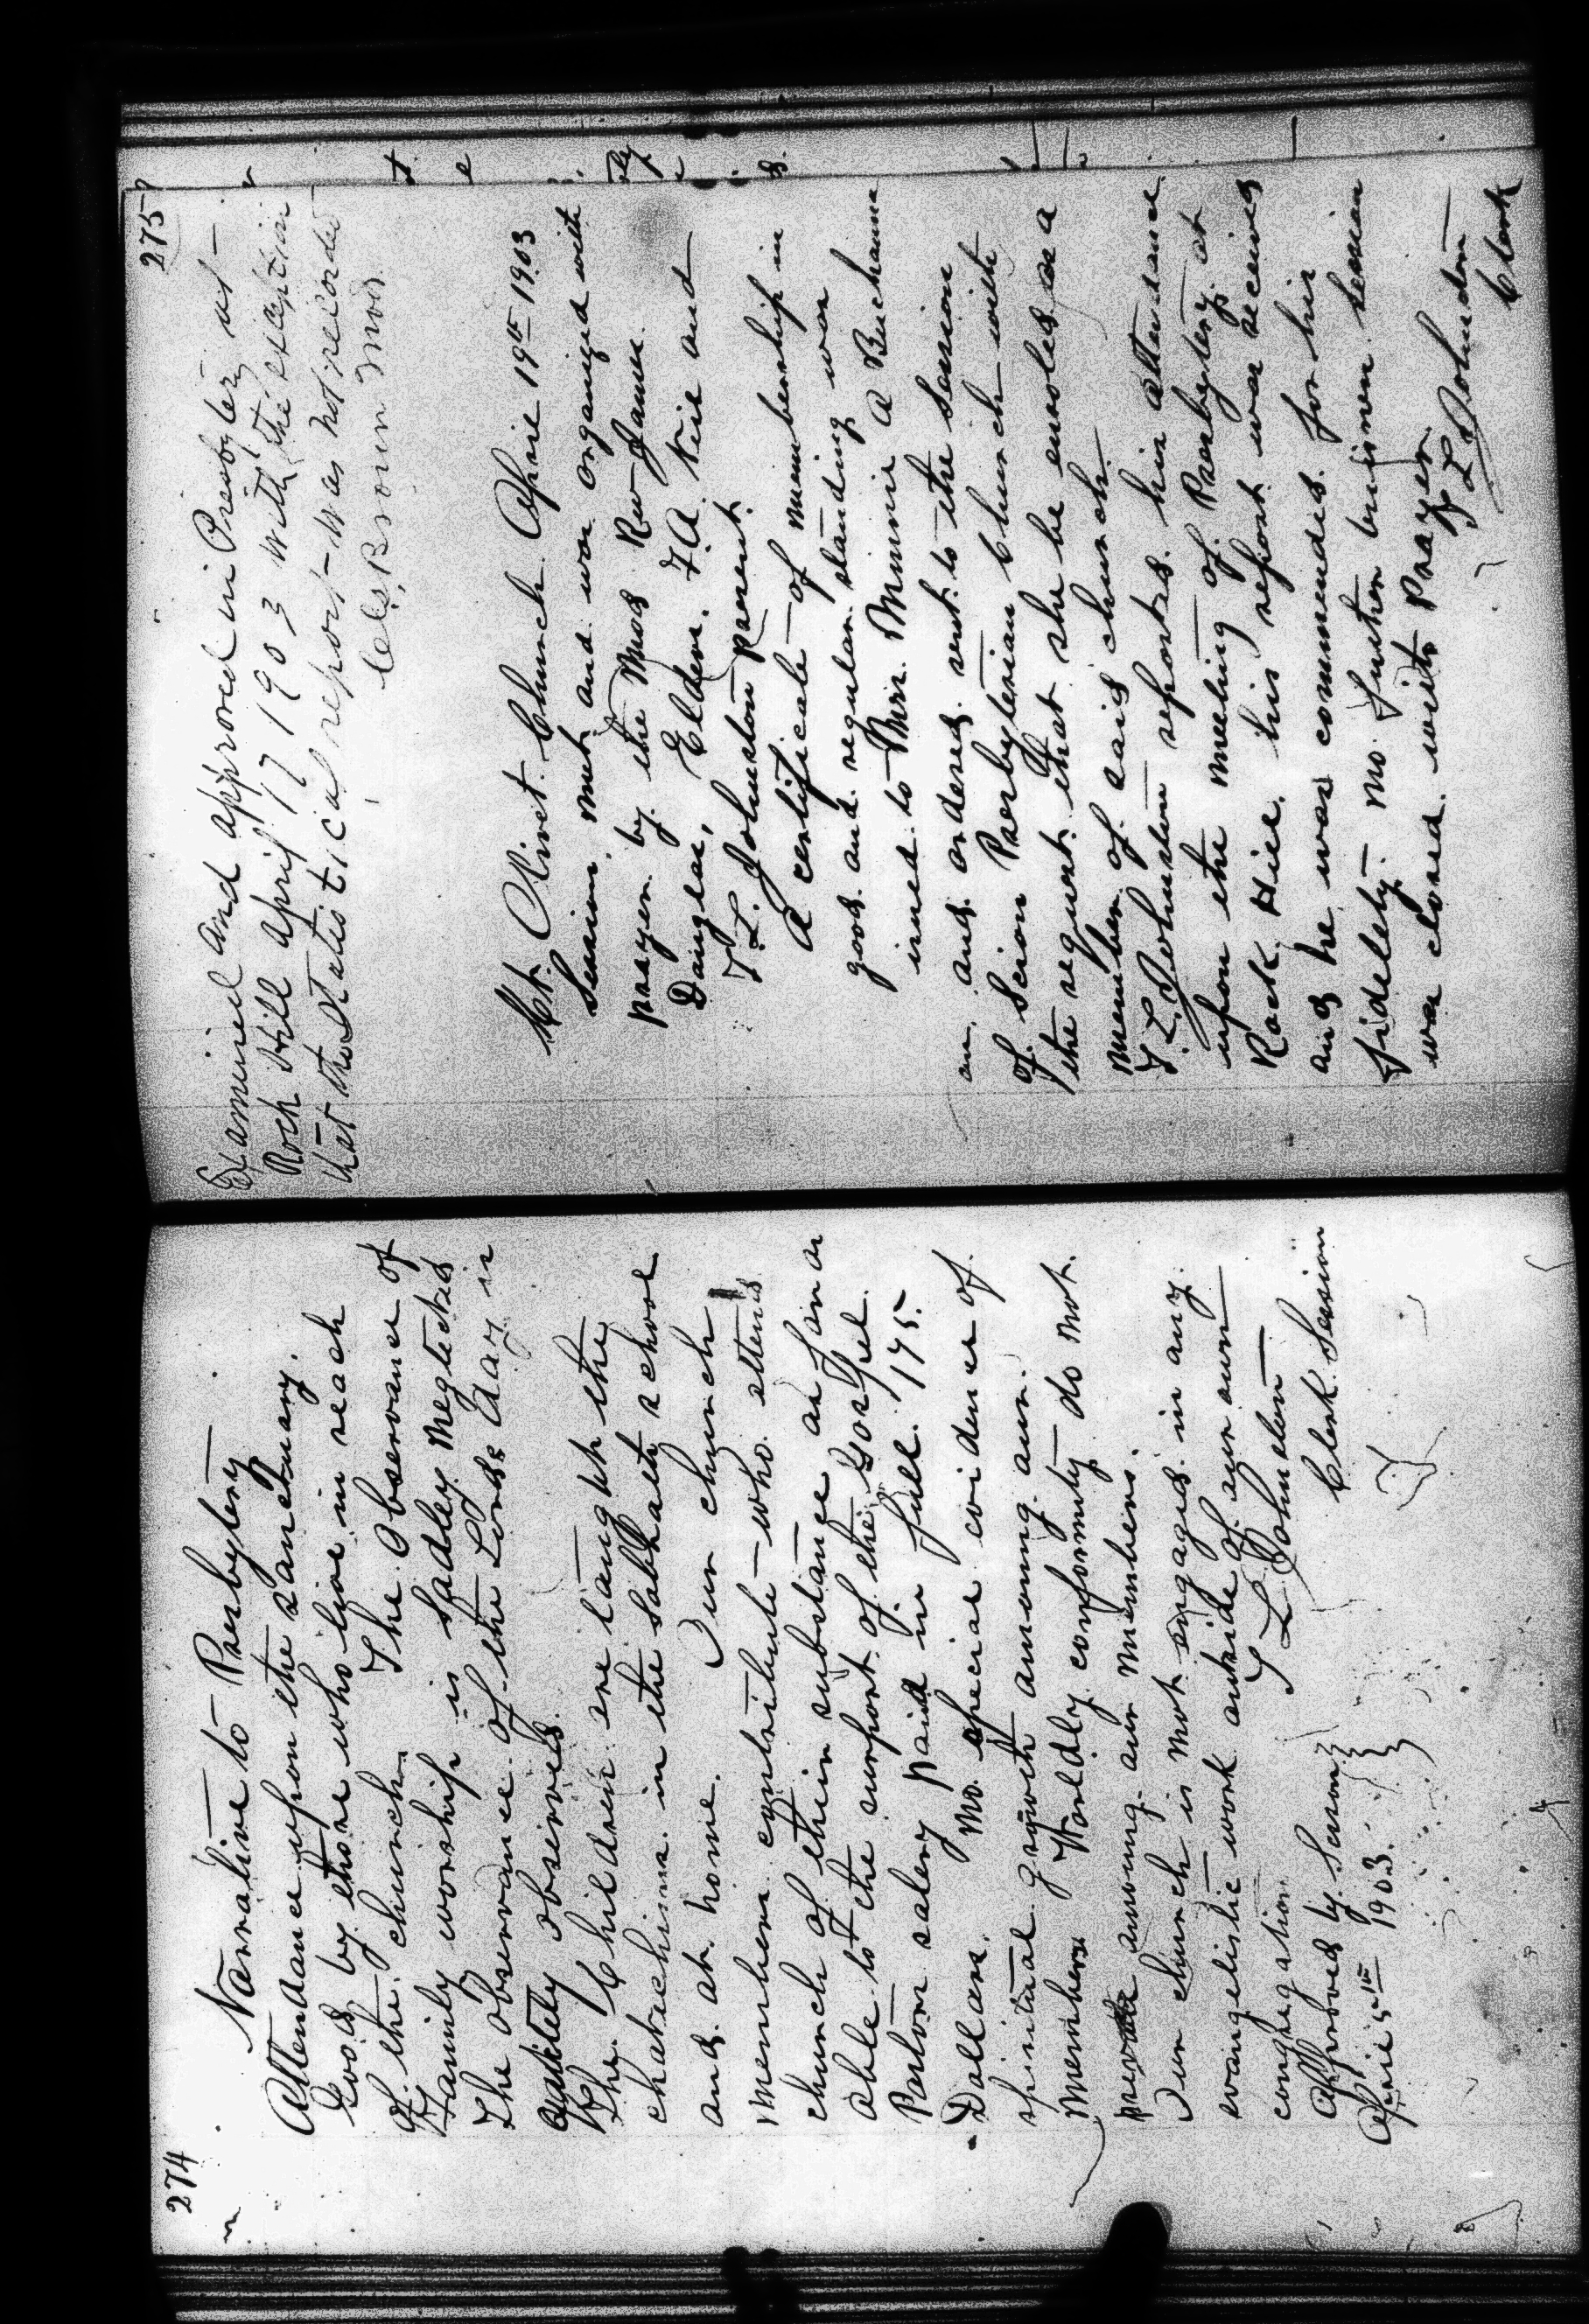 274
Narrative to Presbytery
Attendance upon the sanctuary.
Good by those who live in reach
of the church. The Observance of
Family worship is sadley neglected
The observance of the Lords day is
observed.
The Children are taught the
chatechism in the Sabbath school
and at home. Our church
members contribute who attend
church of their substance as far as
able to the support of the Gospel.
Pastors salery paid in full. 175.
Dallars. No special evidence of
spiritual growth amoung our
members Worldly conformity do not
amoung our members.
Our church is not engaged in any
evangelistic work outside of our own
congregation
Approved by Session
April 5th 1903.
T L Johnston
Clerk Session
275
Examined and approved in Presbytery at
Rock Hill April 17 1903 with the exception
that the Statistical report was not recorded
C. S. Brown Mod.
Mt. Olivet Church April 19th 1903
Session met and was organized with
prayer by the Mod Rev James
Douglas, Elders. F.A Neil and
T. L. Johnston present.
A certificate of membership in
good and regular standing was
issued to Mrs. Minnie A Buchanan
an. and ordered sent to the Session
of Scion Presbyterian Church with
the request that she be enroled as a
member of said church.
T. L. Johnston reported his attendance
upon the meeting of Presbytery at
Rock Hill his report was received
and he was commended for his
fidelety. no further buisness Session
was closed with Prayer.
T L Johnston
Clerk